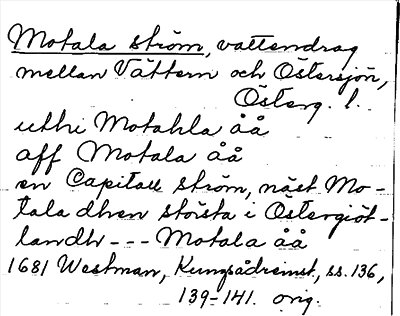 Motala ström, vattendrag
mellan Vättern och Östersjön,
Österg. l.
uthi Motahla åå
aff Motala åå
en Capitall ström, näst Mo-
tala dhen största i Östergiöt-
landh --- Motala åå
1681 Westman, Kungsådreinst., ss. 136,
139-141. orig.